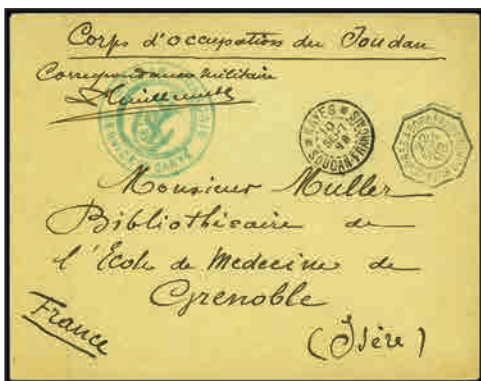 Corps d'occupation du Soudan
Correspondance Militaire
SERVICE DE SANTÉ
KAYES
10
SEPT
98
SOUDAN-FRANÇAIS
Monsieur Muller
Bibliothécaire de
l'École de Medecine de
Grenoble
(Isère)
France